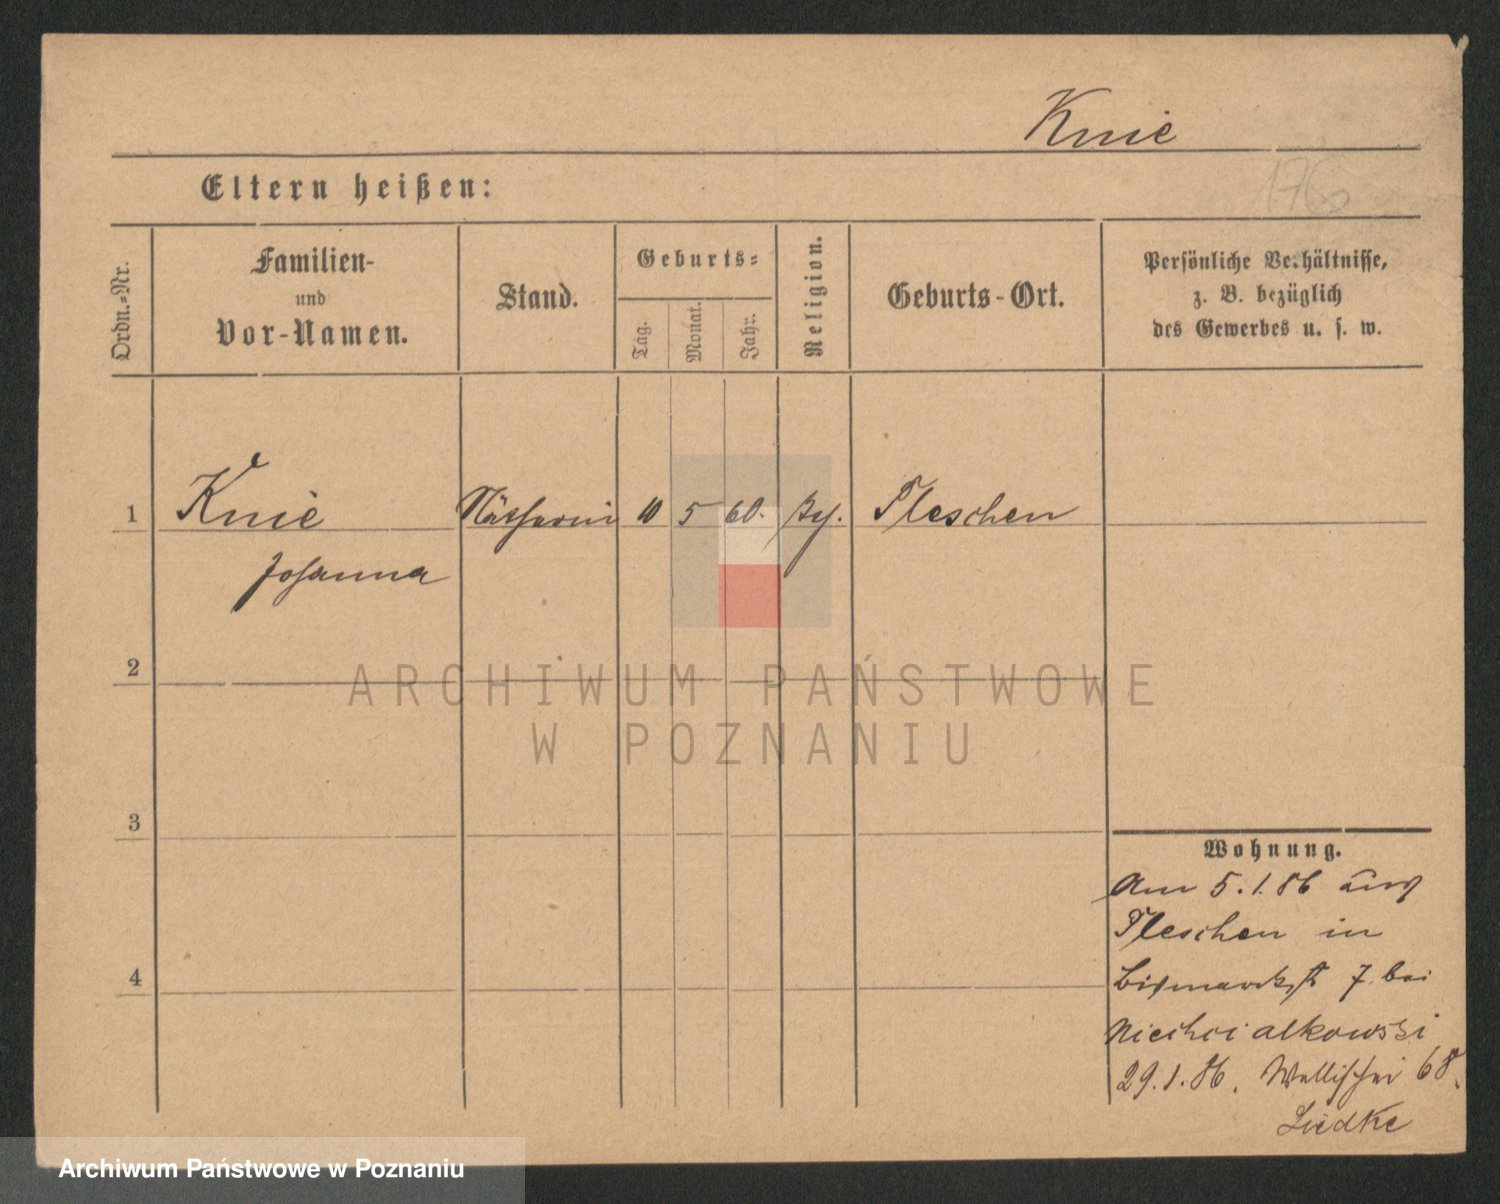 Knie
Eltern heißen:
Ordn.-Nr.
Familien-
und
Vor-Namen.
Stand.
Geburts-
Tag.
Monat.
Jahr.
Religion.
Geburts-Ort.
Persönliche Verhältnisse,
z. B. bezüglich
des Gewerbes u. s. w.
1 Knie Nätherin 10 5 60. Pleschen
Johanna
2
ARCHIWUM PAŃSTWOWE
W POZNANIU
3
4
Wohnung.
Am 5.1.86 aus
Pleschen in
Bismarckst 7 bei
Niechcialkowski
29.1.86. Wallischei 68.
Liedke
Archiwum Państwowe w Poznaniu